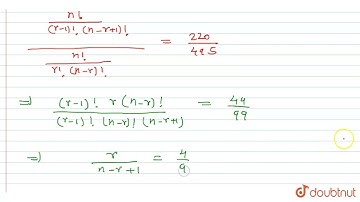 n!
(r-1)! (n-r+1)!
n!
r! (n-r)!
= 220
495
=> (r-1)! r (n-r)!
(r-1)! (n-r)! (n-r+1)
= 44
99
=> r
n-r+1
= 4
9
doubtnut